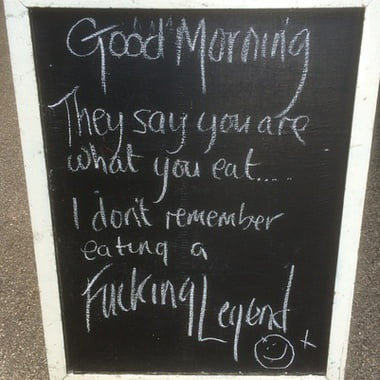 Good Morning
They say you are
what you eat.....
I don't remember
eating a
Fucking Legend
x